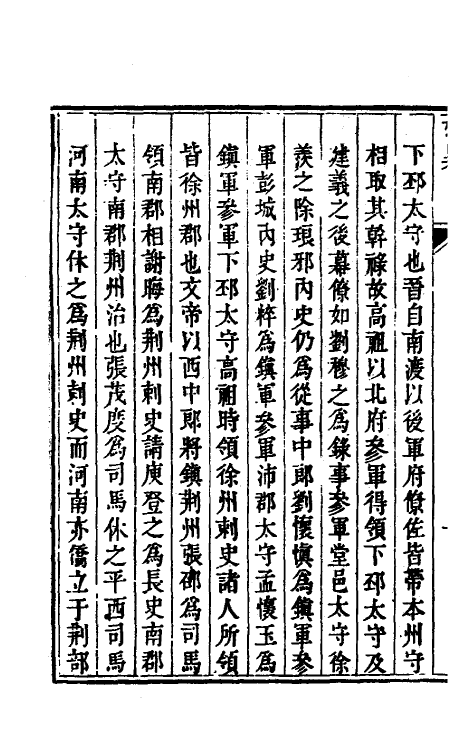 下邳太守也晉自南渡以後軍府僚佐皆帶本州守
相取其幹祿故高祖以北府參軍得領下邳太守及
建義之後幕僚如劉穆之爲錄事參軍堂邑太守徐
羨之除琅邪內史仍爲從事中郎劉懷慎爲鎮軍參
軍彭城內史劉粹爲鎮軍參軍沛郡太守孟懷玉爲
鎮軍參軍下邳太守高祖時領徐州刺史諸人所領
皆徐州郡也文帝以西中郎將鎮荆州張邵爲司馬
領南郡相謝晦爲荆州刺史請庾登之爲長史南郡
太守南郡荆州治也張茂度爲司馬休之平西司馬
河南太守休之爲荆州刺史而河南亦僑立于荆部